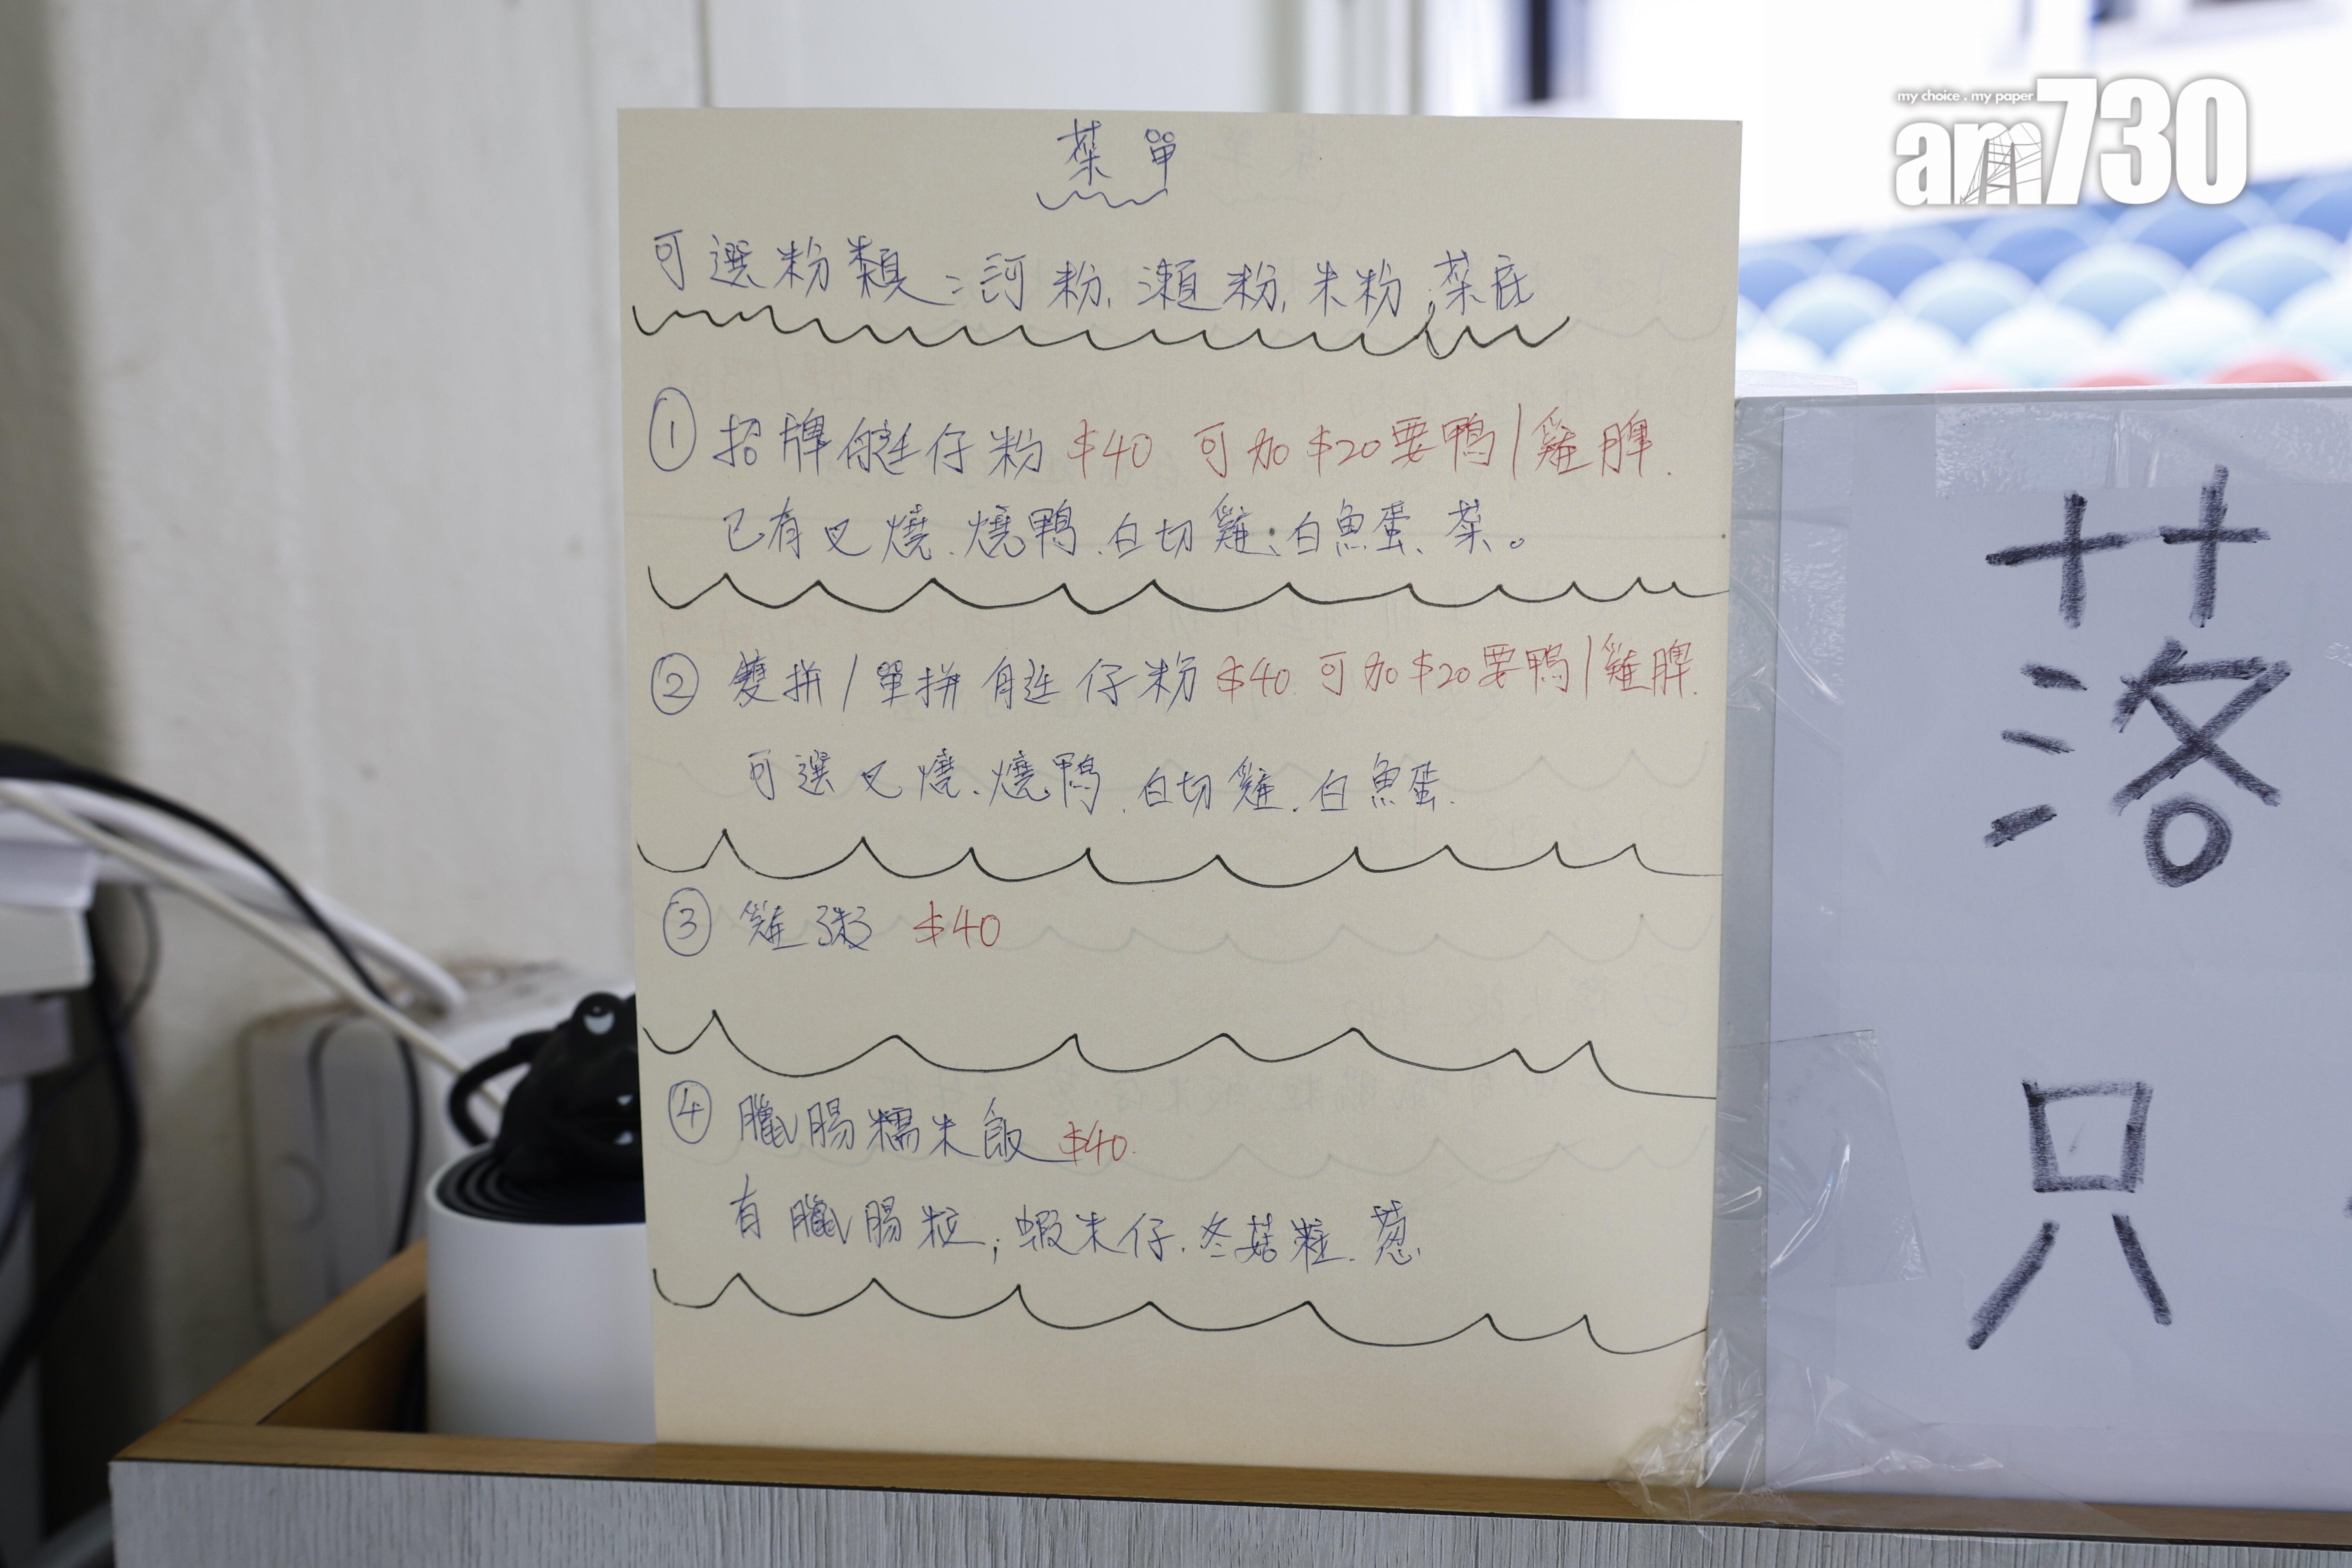 菜單
可選粉類：河粉、瀨粉、米粉、菜底
① 招牌艇仔粉 $40 可加$20要鴨/雞脾.
已有叉燒、燒鴨、白切雞、白魚蛋、菜。
② 雙拼/單拼艇仔粉 $40 可加$20要鴨/雞脾.
可選叉燒、燒鴨、白切雞、白魚蛋.
③ 雞粥 $40
④ 臘腸糯米飯 $40.
有臘腸粒、蝦米仔、冬菇粒、葱.
落
只
my choice . my paper
am730